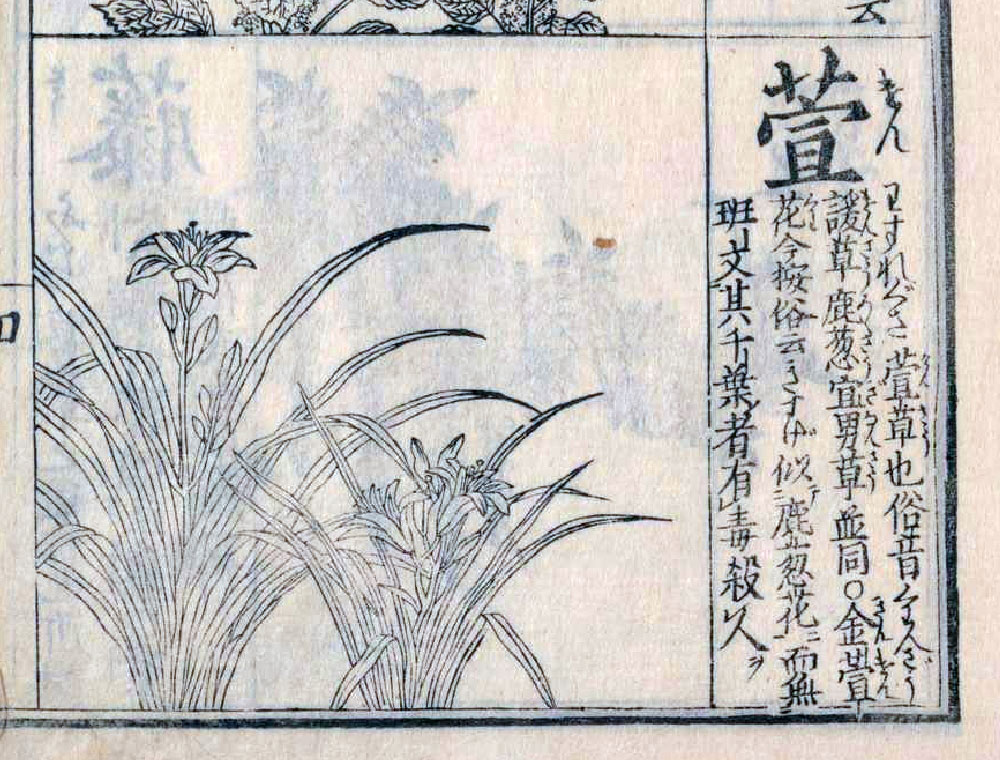 云
萱
けん
わすれぐさ 萱草也俗音くわんざう
諼草鹿葱宜男草並同○金萱
花今按俗云きすげ似鹿葱花而無
班文其千葉者有毒殺人